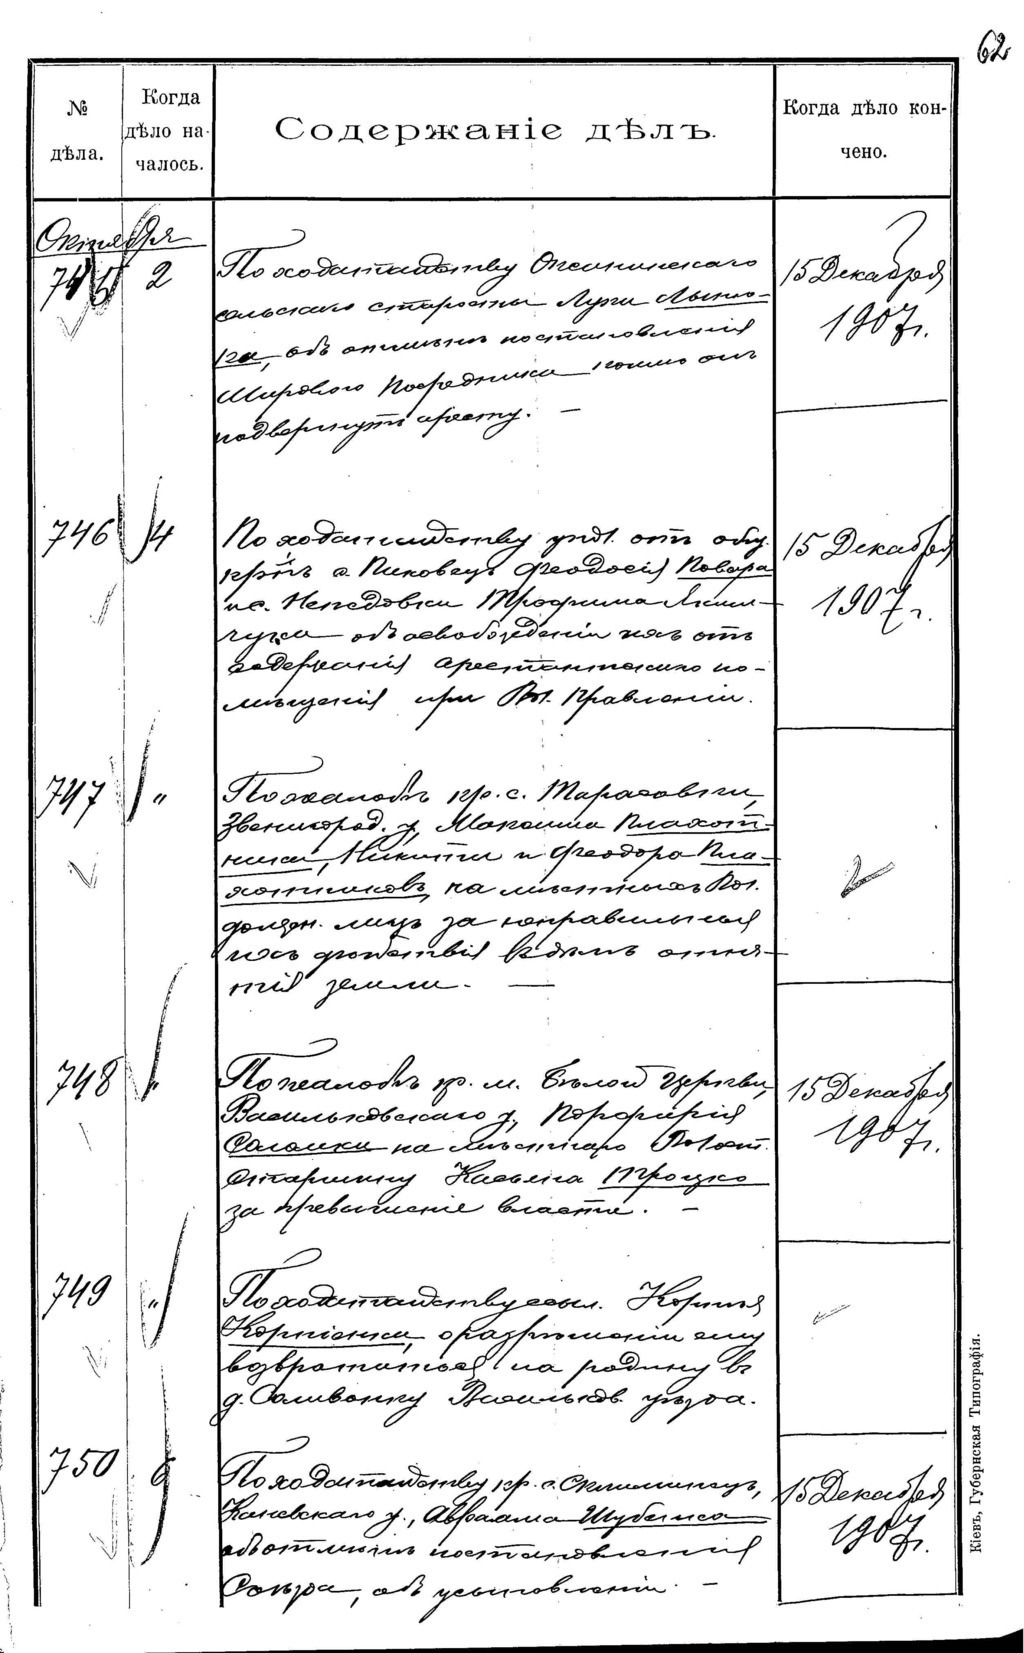 62
№ дѣла.
Когда дѣло на-
чалось.
Содержаніе дѣлъ.
Когда дѣло кон-
чено.
Октября
745 2
По ходатайству
сельскаго старосты Луки
ка, объ отмѣнѣ постановленія
Мирового Посредника коимъ онъ
подвергнутъ аресту. —
15 Декабря
1907 г.
746 4
По ходатайству упол. отъ общ.
крѣпъ с. Пиковецъ Феодосія Повара
и с. Нехедовки Трофима Яким-
чука объ освобожденіи ихъ отъ
содержанія арестантскаго по-
мѣщенія при Вол. Правленіи.
15 Декабря
1907 г.
747 "
По жалобѣ кр. с. Тарасовки,
Звенигород. у, Максима Плахот-
ника, Никиты и Феодора Пла-
хотниковъ, на мѣстныхъ Вол.
должн. лицъ за неправильныя
ихъ дѣйствія въ дѣлѣ отня-
тія земли. —
748 "
По жалобѣ кр. м. Бѣлой Церкви,
Васильковскаго у., Порфирія
Саломки на мѣстнаго Волост.
Старшину Касьяна Троцко
за превышеніе власти. —
15 Декабря
1907 г.
749 "
По ходатайству ссыл. Корнія
Корніенка, о разрѣшеніи ему
возвратиться на родину въ
д. Саливонку Васильков. уѣзда.
750 6
По ходатайству кр. с. Склиминецъ,
Каневскаго у., Авраама Шубенка
объ отмѣнѣ постановленія
Съѣзда, объ усыновленіи. —
15 Декабря
1907 г.
Кіевъ, Губернская Типографія.